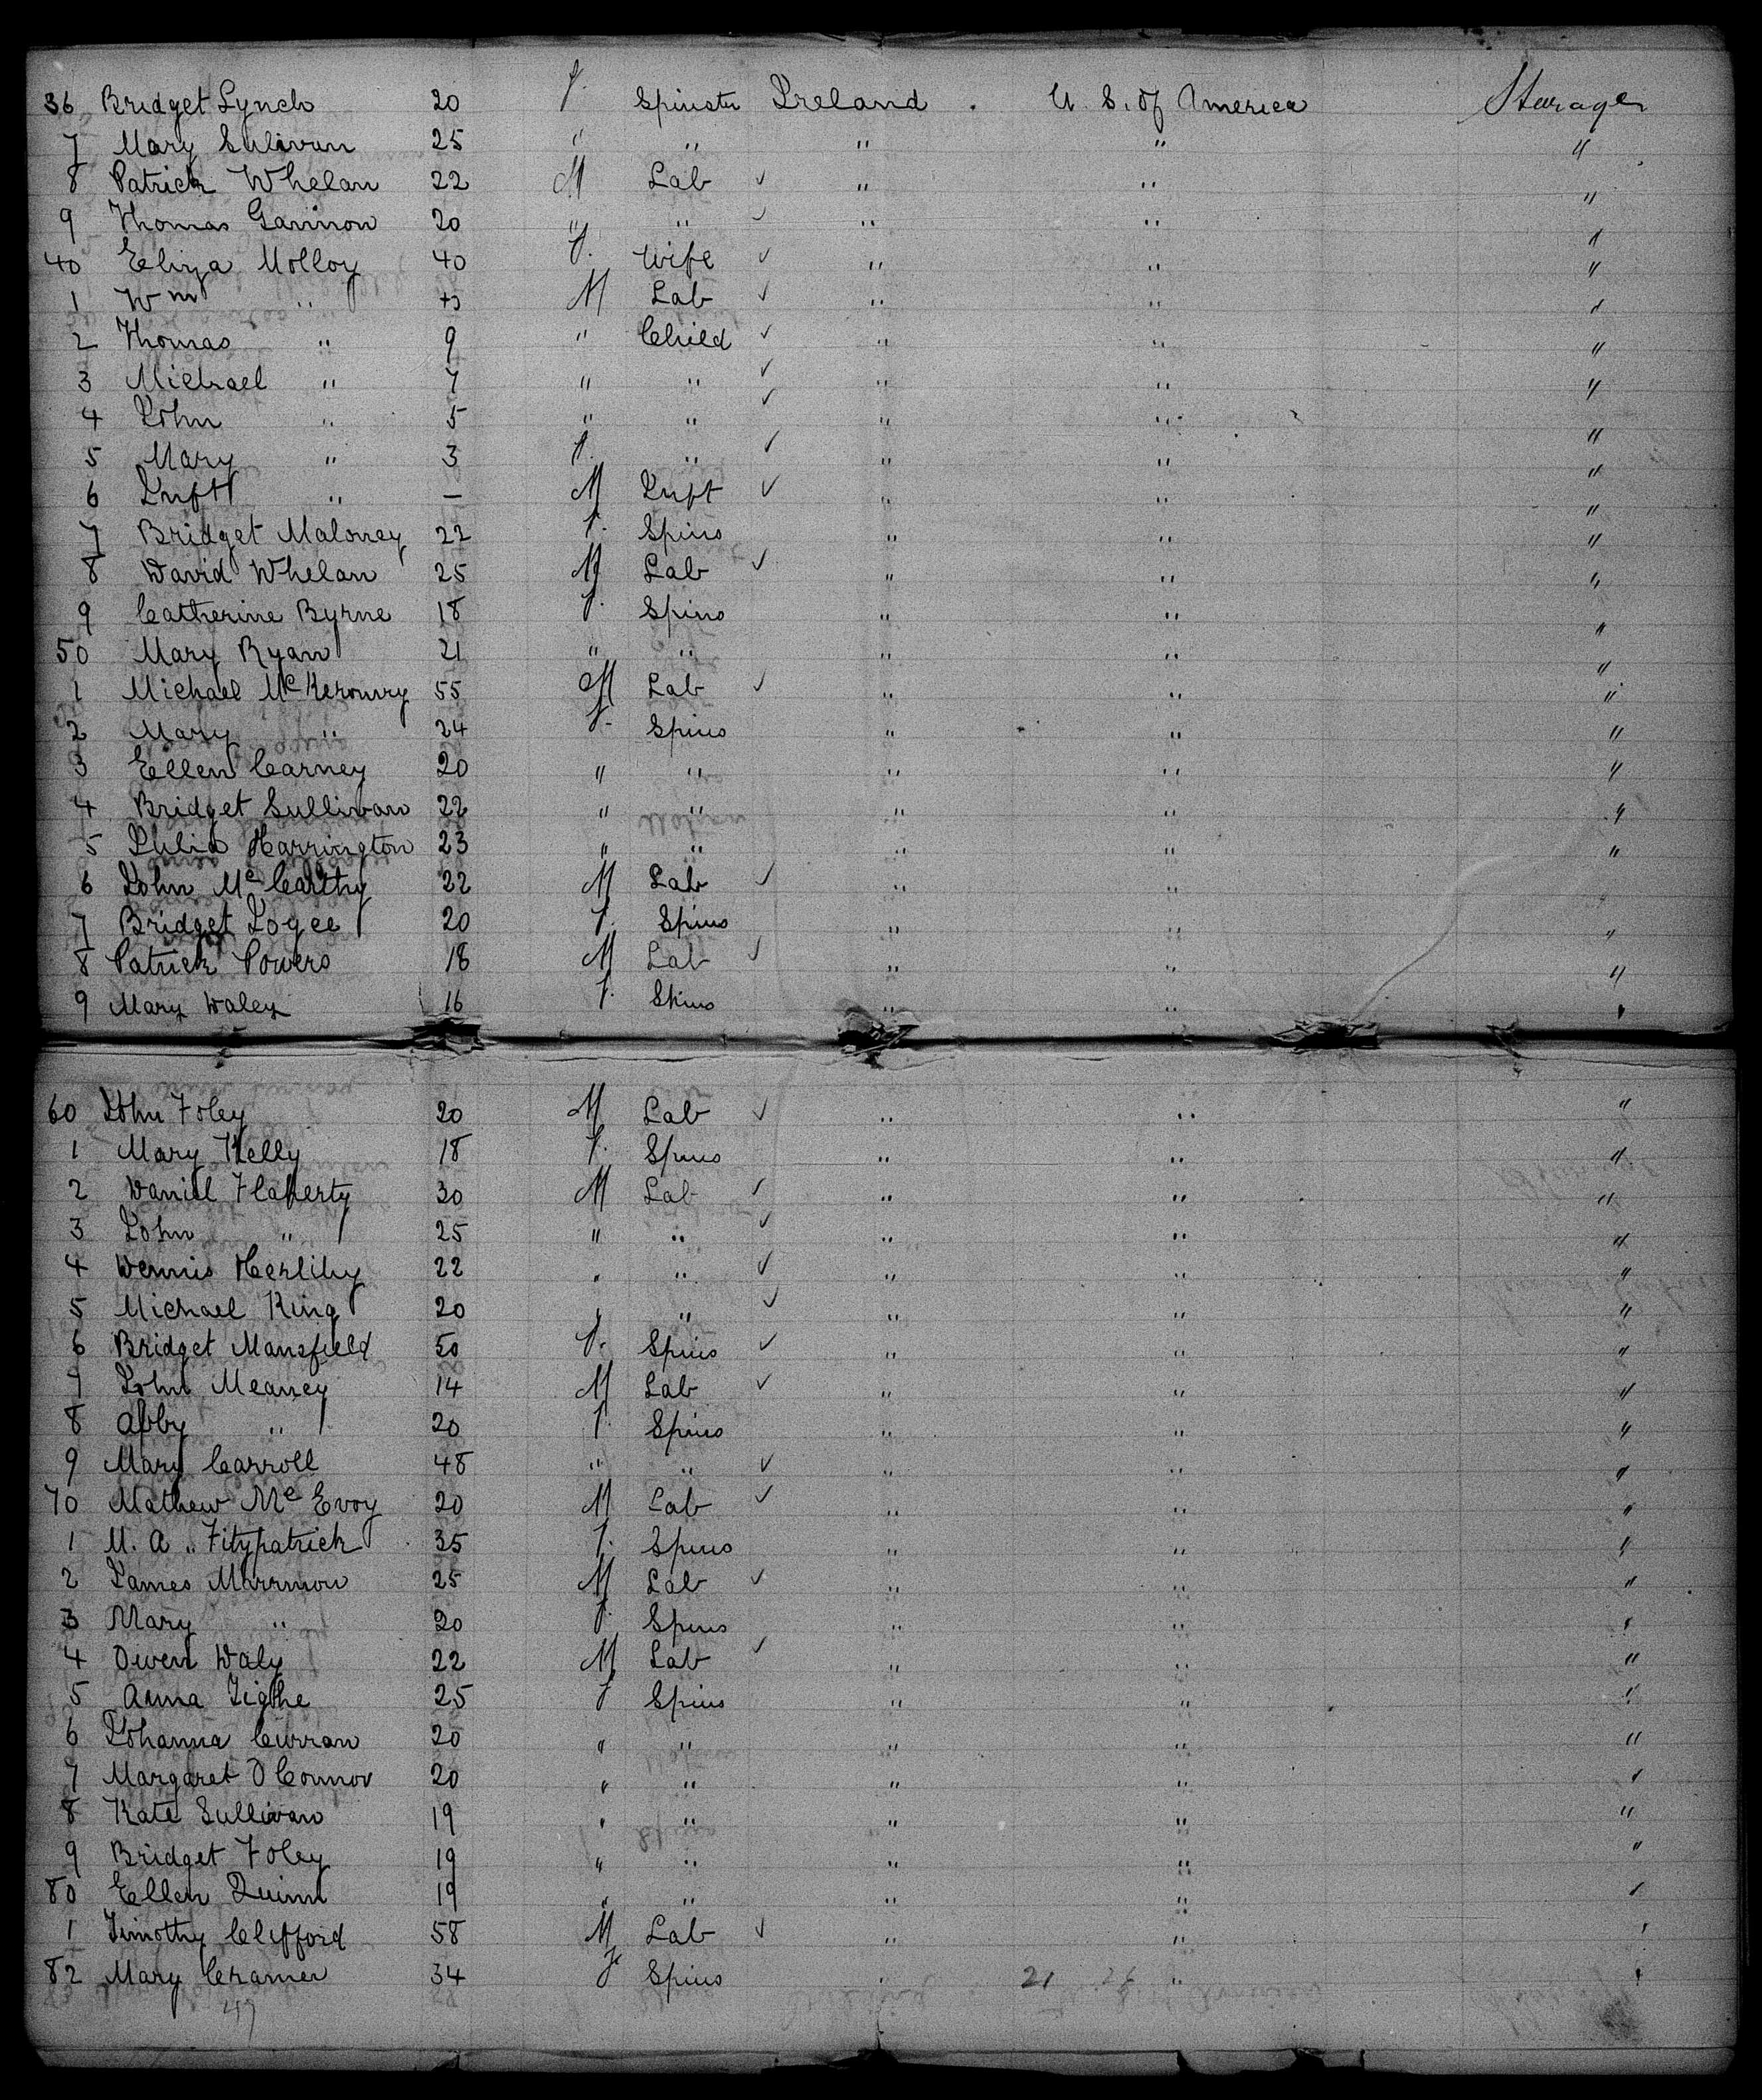 36 Bridget Lynch 20 f. Spinster Ireland . U. S. of America Steerage
7 Mary Sulivan 25 " " " " "
8 Patrick Whelan 22 M Lab ✓ " " "
9 Thomas Gannon 20 " " ✓ " " "
40 Eliza Molloy 40 f. Wife ✓ " " "
1 Wm " M Lab ✓ " " "
2 Thomas " 9 " Child ✓ " " "
3 Michael " 7 " " ✓ " " "
4 John " 5 " " ✓ " " "
5 Mary " 3 f. " ✓ " " "
6 Inft " — M Inft ✓ " " "
7 Bridget Maloney 22 f. Spins " " "
8 David Whelan 25 M Lab ✓ " " "
9 Catherine Byrne 18 f. Spins " " "
50 Mary Ryan 21 " " " " "
1 Michael 55 M Lab ✓ " " "
2 Mary " 24 f. Spins " " "
3 Ellen Carney 20 " " " " "
4 Bridget Sullivan 22 " " " " "
5 Harrington 23 " " " " "
6 John Mc Carthy 22 M Lab ✓ " " "
7 Bridget 20 f. Spins " " "
8 Patrick Powers 18 M Lab ✓ " " "
9 Mary Daley 16 f. Spins " " "
60 John Foley 20 M Lab ✓ " " "
1 Mary Kelly 18 f. Spins " " "
2 Daniel Flaherty 30 M Lab ✓ " " "
3 John " 25 " " ✓ " " "
4 Dennis Herlihy 22 " " ✓ " " "
5 Michael King 20 " " ✓ " " "
6 Bridget Mansfield 50 f. Spins ✓ " " "
7 John Meaney 14 M Lab ✓ " " "
8 Abby " 20 f. Spins " " "
9 Mary Carroll 48 " " ✓ " " "
70 Mathew Mc Evoy 20 M Lab ✓ " " "
1 M. A. Fitzpatrick 35 f. Spins " " "
2 James 25 M Lab ✓ " " "
3 Mary " 20 f. Spins " " "
4 Owen Daly 22 M Lab ✓ " " "
5 Anna Tighe 25 f Spins " " "
6 Johanna Curran 20 " " " " "
7 Margaret O Connor 20 " " " " "
8 Kate Sullivan 19 " " " " "
9 Bridget Foley 19 " " " " "
80 Ellen Quinn 19 " " " " "
1 Timothy Clifford 58 M Lab ✓ " " "
82 Mary Cramer 34 f Spins " 21 26 " "
47